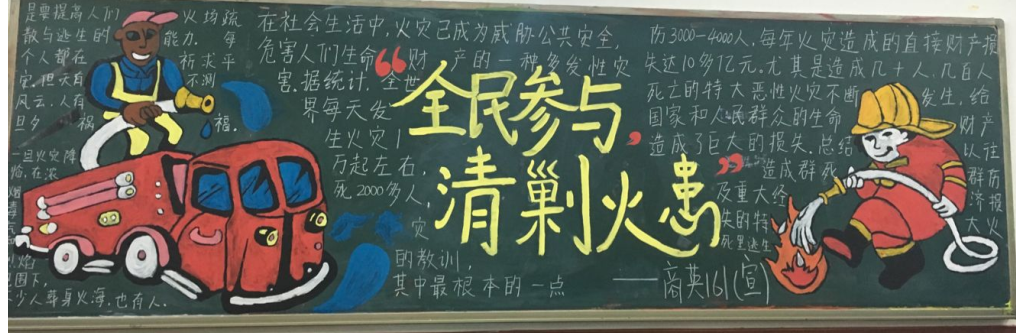 在社会生活中,火灾已成为威胁公共安全,
危害人们生命财产的一种多发性灾
害.据统计,全世
界每天发
生火灾1
万起左右,
死2000多人,
伤3000-4000人,每年火灾造成的直接财产损
失达10多亿元。尤其是造成几十人、几百人
死亡的特大恶性火灾不断发生,给
国家和人民群众的生命财产
造成了巨大的损失.总结以往
造成群死群伤
及重大经济损
失的特大火
灾
的教训,
其中最根本的一点
是要提高人们火场疏
散与逃生的能力.每
个人都在祈求平
安.但天有不测
风云,人有
旦夕祸福.
一旦火灾降
临,在浓
围下,
少人葬身火海,也有人
死里逃生
“全民参与,
清剿火患”
——商英161(宣)